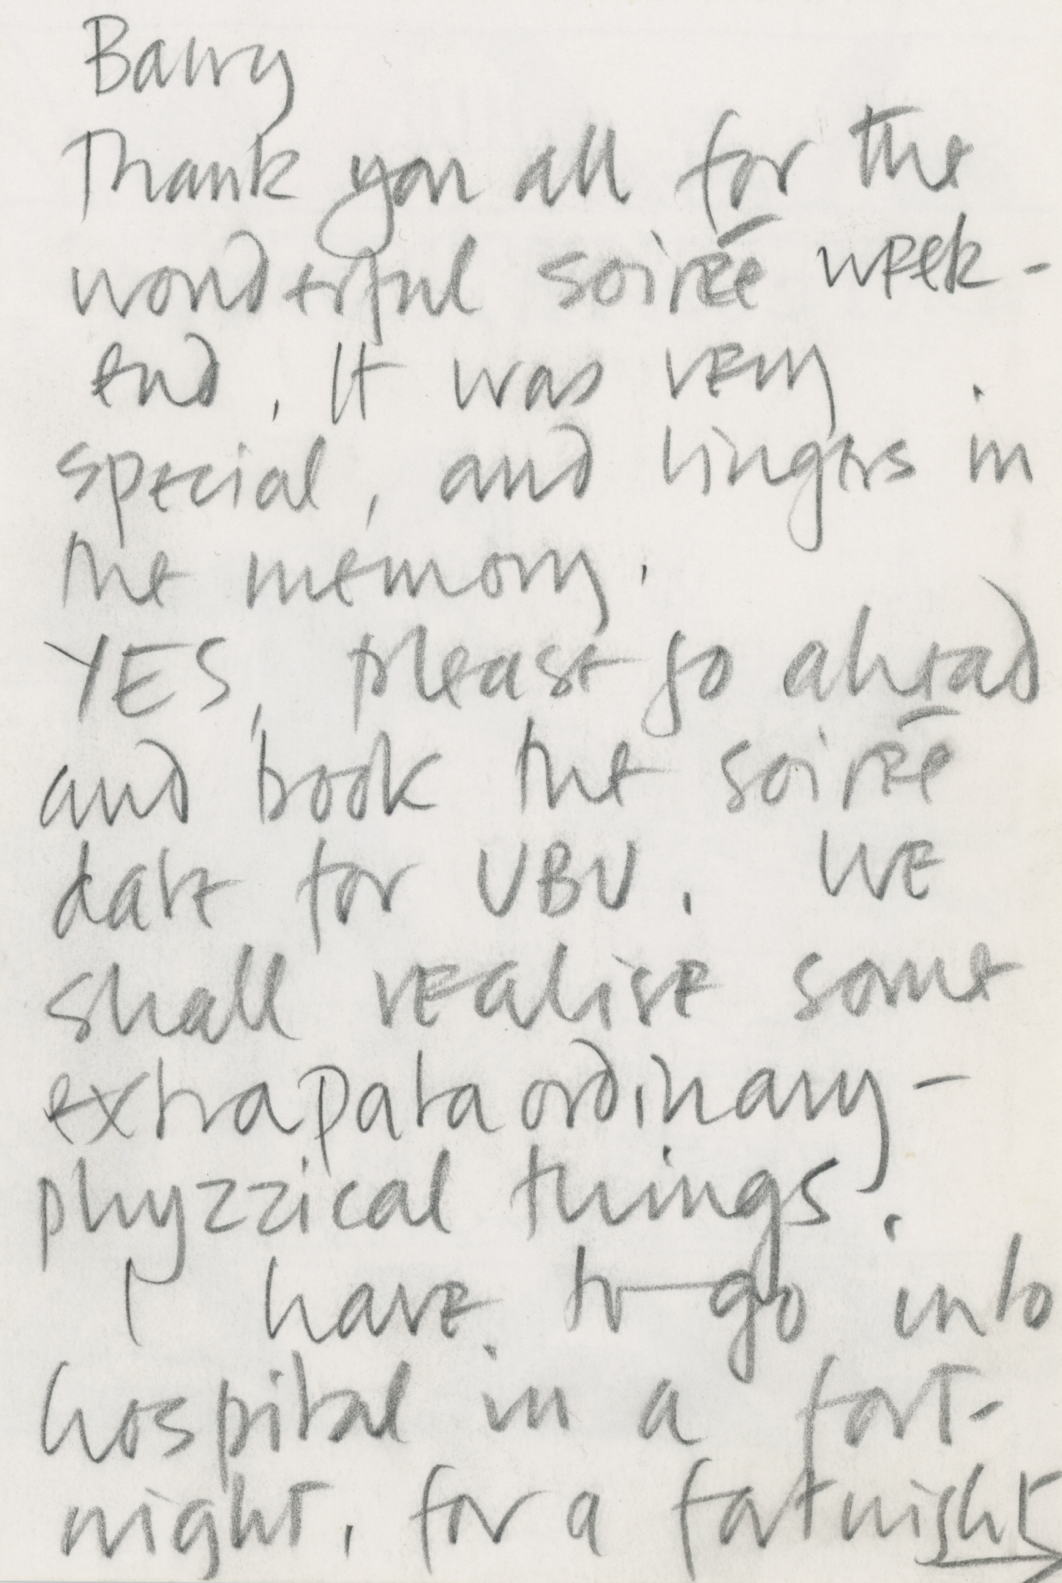 Barry
Thank you all for the
wonderful soirēe week-
end. It was very
special, and lingers in
the memory.
YES, please go ahead
and book the soirēe
date for UBU. We
shall realise some
extrapataordinary-
phyzzical things.
I have to go into
hospital in a fort-
night, for a fatnight